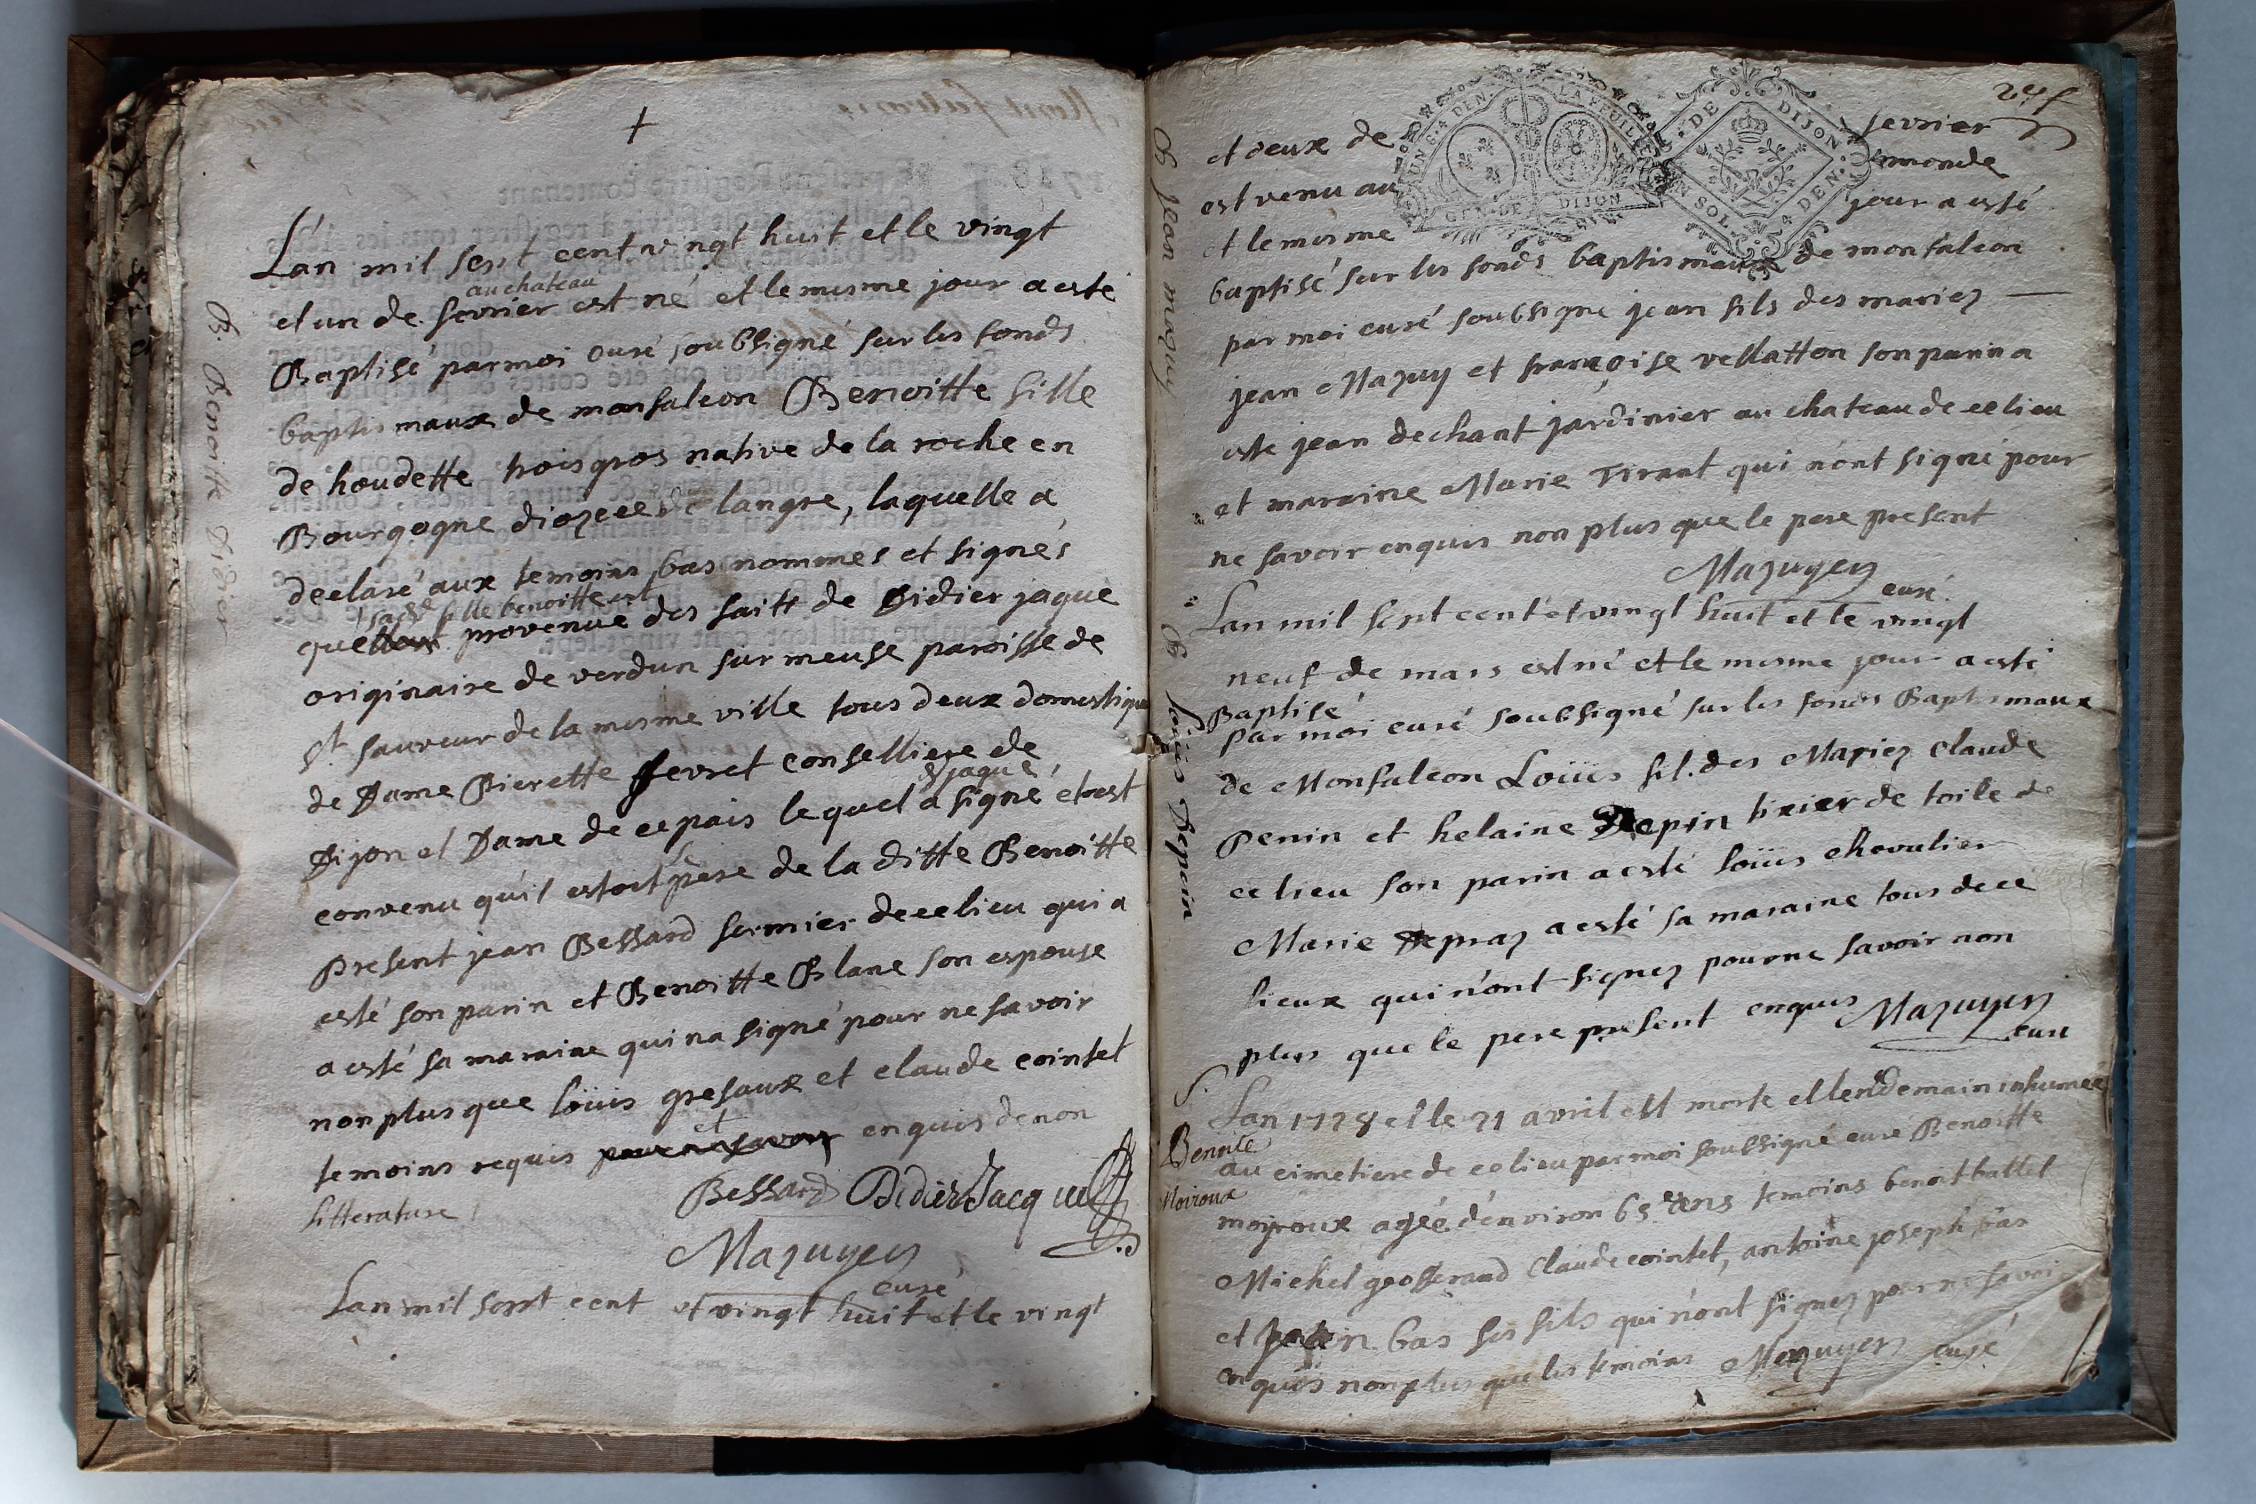 +
L'an mil sept cent vingt huit et le vingt
au chateau
et un de fevrier est né et le mesme jour a esté
Baptisé par moi curé soubsigné sur les fonds
baptismaux de monfalcon Benoitte fille
de houdette troisgros native de la roche en
Bourgogne diozece de langre, laquelle a
declaré aux temoins bas nommés et signés
sad.e fille benoitte est
que provenue des faitt de Didier jaque
originaire de verdun sur meuse paroisse de
st sauveur de la mesme ville tous deux domestique
de Dame Pierette fevret conselliere de
d jaque
Dijon et Dame de ce pais le quel a signé et est
convenu qu'il estoit pere de la ditte Benoitte
Present jean Bessard fermier de ce lieu qui a
esté son parin et Benoitte Blanc son espouse
a esté sa maraine qui na signé pour ne savoir
non plus que loüis gresaux et claude cointet
et
temoins requis pour ne savoir enquis de non
litterature
Bessard Didier Jacque
Mazuyer
curé
Lan mil sept cent et vingt huit et le vingt
B. Benoitte Didier
et deux de fevrier
est venu au monde
et le mesme jour a esté
GEN. DE DIJON
LA FEUILLE
UN SOL. 4 DEN.
DE DIJON
baptisé sur les fonds baptismaux de monfalcon
par moi curé soubsigné jean fils des mariez
jean Mazuy et françoise vellatton son parin a
esté jean dechant jardinier au chateau de ce lieu
et maraine Marie Tirant qui n'ont signé pour
ne savoir enquis non plus que le pere present
Mazuyer
curé.
B jean mazuy
Lan mil sept cent et vingt huit et le vingt
neuf de mars est né et le mesme jour a esté
Baptisé
par moi curé soubsigné sur les fonds Baptismaux
de Monfalcon Loüis fil. des Mariez Claude
Penin et helaine Depin tixier de toile de
ce lieu son parin a esté loüis chevalier
Marie Depraz a esté sa maraine tous de ce
lieux qui n'ont signez pour ne savoir non
plus que le pere present enquis Mazuyer
curé
B loüis Depoin
S.
Benoite
Moiroux
Lan 1728 et le 21 avril est morte et lendemain inhumée
au cimetiere de ce lieu par moi soussigné curé Benoitte
moyroux agée d'environ 65 ans temoins benoit battet
Michel grosserand Claude cointet, antoine joseph bas
et bas ses fils qui n'ont signez pour ne savoir
enquis non plus que les temoins Mazuyer curé